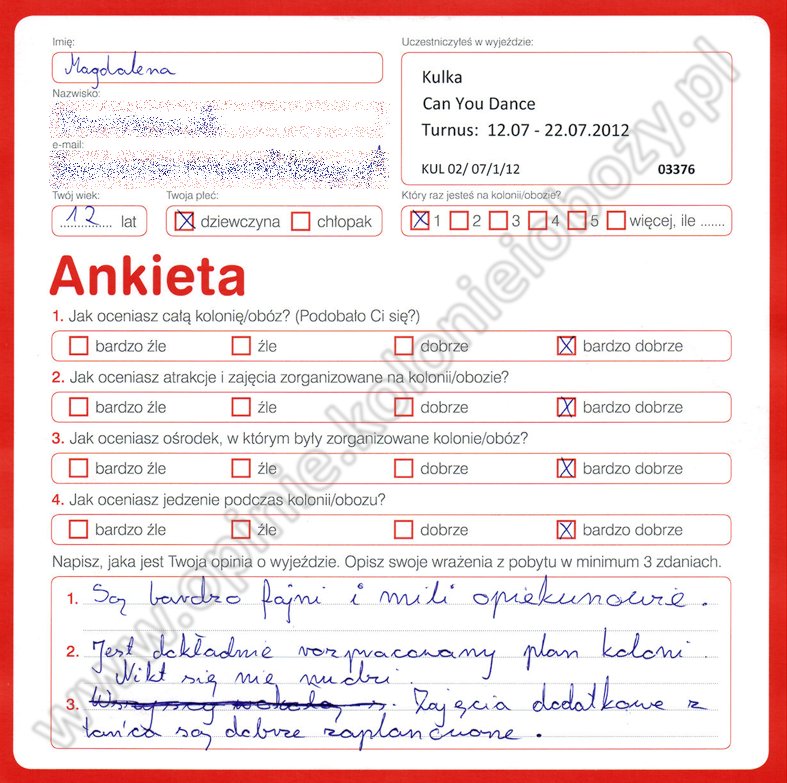 Imię:
Magdalena
Nazwisko:
e-mail:
Twój wiek:
12 lat
Twoja płeć:
dziewczyna chłopak
Uczestniczyłeś w wyjeździe:
Kulka
Can You Dance
Turnus: 12.07 - 22.07.2012
KUL 02/ 07/1/12 03376
Który raz jesteś na kolonii/obozie?
1 2 3 4 5 więcej, ile .......
Ankieta
1. Jak oceniasz całą kolonię/obóz? (Podobało Ci się?)
bardzo źle źle dobrze bardzo dobrze
2. Jak oceniasz atrakcje i zajęcia zorganizowane na kolonii/obozie?
bardzo źle źle dobrze bardzo dobrze
3. Jak oceniasz ośrodek, w którym były zorganizowane kolonie/obóz?
bardzo źle źle dobrze bardzo dobrze
4. Jak oceniasz jedzenie podczas kolonii/obozu?
bardzo źle źle dobrze bardzo dobrze
Napisz, jaka jest Twoja opinia o wyjeździe. Opisz swoje wrażenia z pobytu w minimum 3 zdaniach.
1. Są bardzo fajni i mili opiekunowie.
2. Jest dokładnie rozpracowany plan koloni.
Nikt się nie nudzi.
3. Zajęcia dodatkowe z
tańca są dobrze zaplanowane.
www.opinie.kolonieiobozy.pl